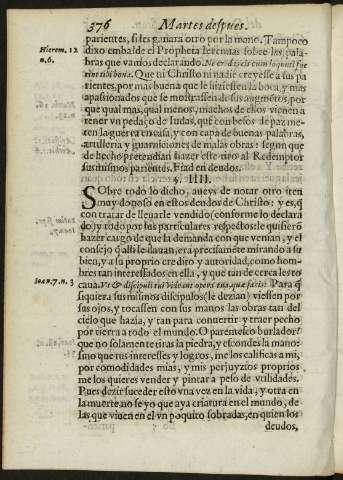 376 Martes despues.
parientes, si les ganara otro por la mano. Tampoco
Hierem. 12 dixo embalde el Propheta Ieremias sobre las pala-
n.6. bras que vamos declarando. Ne credas eis cum loquuti fue
rint tibi bona. Que ni Christo ni nadie creyesse a sus pa
rientes, por mas buena que le hiziessen la boca, y mas
apasionados que se mostrassen de sus augmentos, por
que qual mas, qual menos, muchos dellos vienen a
tener vn pedaço de Iudas, que con besos de paz me-
ten la guerra en casa, y con capa de buenas palabras,
artilleria y guarniciones de malas obras: segun que
de hecho pretendian hazer este tiro al Redemptor
sus mismos parientes. Fiad en deudos.
§. IIII.
SObre todo lo dicho, aueys de notar otro item
muy donoso en estos deudos de Christo: y es, q̃
con tratar de lleuarle vendido (conforme lo declara
do) y todo por sus particulares respetos: le quisierõ
hazer cargo de que la demanda con que venian, y el
consejo q̃ alli le dauan, era precisamẽte mirando a su
bien, y a su proprio credito y autoridad, como hom-
bres tan interessados en ella, y que tan de cerca les to
Ioan. 7. n. 3 caua. Vt & discipuli tui videant opera tua, quæ facis: Para q̃
siquiera sus mismos discipulos (le dezian) viessen por
sus ojos, y tocassen con sus manos las obras tan del
cielo que hazia, y tan para conuertir y traer pecho
por tierra a todo el mundo. O parentesco burlador!
que no solamente tiras la piedra, y escondes la mano:
sino que tus interesses y logros, me los calificas a mi,
por comodidades mias, y mis perjuyzios proprios
me los quieres vender y pintar a peso de vtilidades.
Pues dezir suceder esto vna vez en la vida, y otra en
la muerte no se yo que aya criatura en el mundo, de
las que viuen en el vn poquito sobradas, en quien los
deudos,